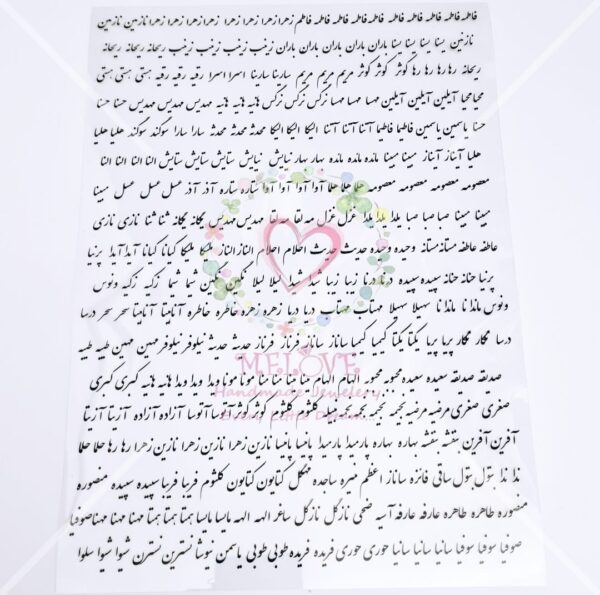 فاطمه فاطمه فاطمه فاطمه فاطمه فاطمه فاطمه زهرا زهرا زهرا زهرا زهرا زهرا نازنین نازنین
نازنین یسنا یسنا یسنا یسنا باران باران باران باران زینب زینب زینب زینب ریحانه ریحانه ریحانه
ریحانه رها رها رها کوثر کوثر کوثر مریم مریم مریم سارینا سارینا اسرا اسرا رقیه رقیه رقیه هستی هستی هستی
محیا محیا آیلین آیلین آیلین مهسا مهسا مهسا نرگس نرگس نرگس هانیه هانیه هانیه مهدیس مهدیس مهدیس حسنا حسنا
حسنا یاسمین یاسمین فاطیما فاطیما آتنا آتنا آتنا الیکا الیکا الیکا محدثه محدثه محدثه سارا سارا سوگند سوگند هلیا هلیا
هلیا آیناز آیناز مبینا مبینا مائده مائده مائده بهار بهار نیایش نیایش ستایش ستایش ستایش النا النا النا
معصومه معصومه معصومه معصومه هلما هلما هلما آوا آوا آوا آوا ستاره ستاره آذر آذر عسل عسل عسل مبینا
مبینا مبینا صبا صبا صبا یلدا یلدا یلدا غزل غزل مه لقا مه لقا مهدیس مهدیس یگانه یگانه ثنا ثنا نازی نازی
عاطفه عاطفه مستانه مستانه وحیده وحیده حدیث حدیث احلام احلام الناز الناز ملیکا ملیکا کیانا کیانا آیدا آیدا پرنیا
پرنیا حنانه حنانه سپیده سپیده درنا درنا زیبا زیبا شیدا شیدا لیلا لیلا نگین نگین شیما شیما زکیه زکیه ونوس
ونوس ماندانا ماندانا سهیلا سهیلا مهتاب مهتاب دیا دیا زهره زهره خاطره خاطره آناهیتا آناهیتا سحر سحر درسا
درسا نگار نگار پریا پریا یکتا یکتا کیمیا کیمیا ساناز ساناز فرناز فرناز حدیثه حدیثه نیلوفر نیلوفر مهین مهین طیبه طیبه
صدیقه صدیقه سعیده سعیده محبوبه محبوبه الهام الهام مینا مینا مینا مونا مونا ویدا ویدا ویدا هانیه هانیه کبری کبری
صغری صغری مرضیه مرضیه نجمه نجمه کلثوم کلثوم کوثر کوثر آتوسا آتوسا آزاده آزاده آزیتا آزیتا
آفرین آفرین بنفشه بنفشه بهاره بهاره پارمیدا پارمیدا پانیسا پانیسا نازنین زهرا نازنین زهرا نازنین زهرا رها رها هلما هلما
ندا ندا بتول بتول ساقی فائزه ساناز اعظم منیره ساجده مهگل کتایون کتایون کلثوم فریبا فریبا سپیده سپیده منصوره
منصوره طاهره طاهره عارفه عارفه آسیه ضحی نازگل نازگل ساغر الهه الهه مائیسا مائیسا هستا هستا مهنا مهنا صوفیا
صوفیا سوفیا سوفیا سانیا سانیا سانیا حوری حوری فریده فریده طوبی طوبی یاسمن نیوشا نسترن نسترن شیوا شیوا سلوا
MELOVE
Handmade Jewelery